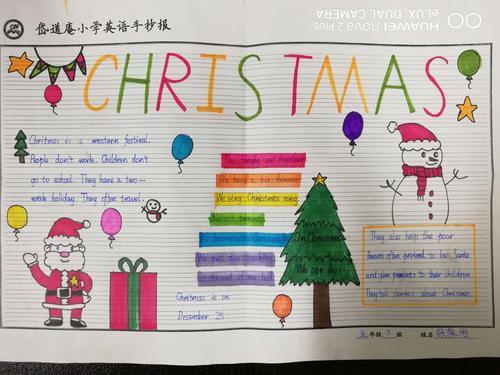 岱道庵小学英语手抄报
HUAWEI nova 2 Plus
eLUX DUAL CAMERA
CHRISTMAS
Christmas is a western festival.
People don't work. Children don't
go to school. They have a two-
week holiday. They often travel.
The family get together
We have a big dinner
We sing Christmas song.
We put two
On Christmas
We can do
Christmas is on
December 25.
They also help the poor
often pretend to be Santa
and give presents to their children
They tell stories about Christmas.
五年级3班 姓名